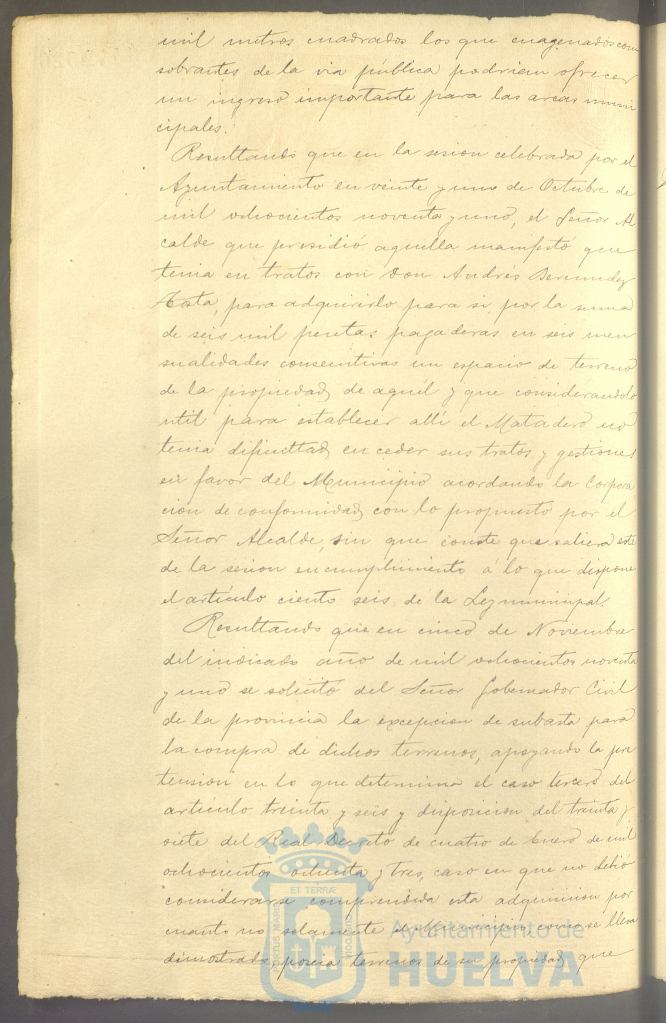 mil metros cuadrados los que enagenados como
sobrantes de la via pública podrian ofrecer
un ingreso importante para las arcas muni
cipales.
Resultando que en la sesion celebrada por el
Ayuntamiento en veinte y uno de Octubre de
mil ochocientos noventa y uno, el Señor Al
calde que presidió aquella manifestó que
tenia en tratos con Don Andrés Bermudez
para adquirirlo para si por la suma
de seis mil pesetas pagaderas en seis men
sualidades consecutivas un espacio de terreno
de la propiedad de aquel y que considerandolo
util para establecer allí el Matadero no
tenia dificultad en ceder sus tratos y gestiones
en favor del Municipio acordando la Corpora
cion de conformidad con lo propuesto por el
Señor Alcalde, sin que conste que saliera este
de la sesion en cumplimiento á lo que dispone
el articulo ciento seis de la Ley municipal.
Resultando que en cinco de Noviembre
del indicado año de mil ochocientos noventa
y uno se solicitó del Señor Gobernador Civil
de la provincia la excepcion de subasta para
la compra de dichos terrenos, apoyando la pre
tension en lo que determina el caso tercero del
articulo treinta y seis y disposicion del treinta y
siete del Real Decreto de cuatro de Enero de mil
ochocientos ochenta y tres, caso en que no debió
considerarse comprendida esta adquisicion por
cuanto no solamente el Municipio como se lleva
demostrado poseia terrenos de su propiedad que
PORTUS MARIS ET TERRÆ CUSTODIA
Ayuntamiento de
HUELVA